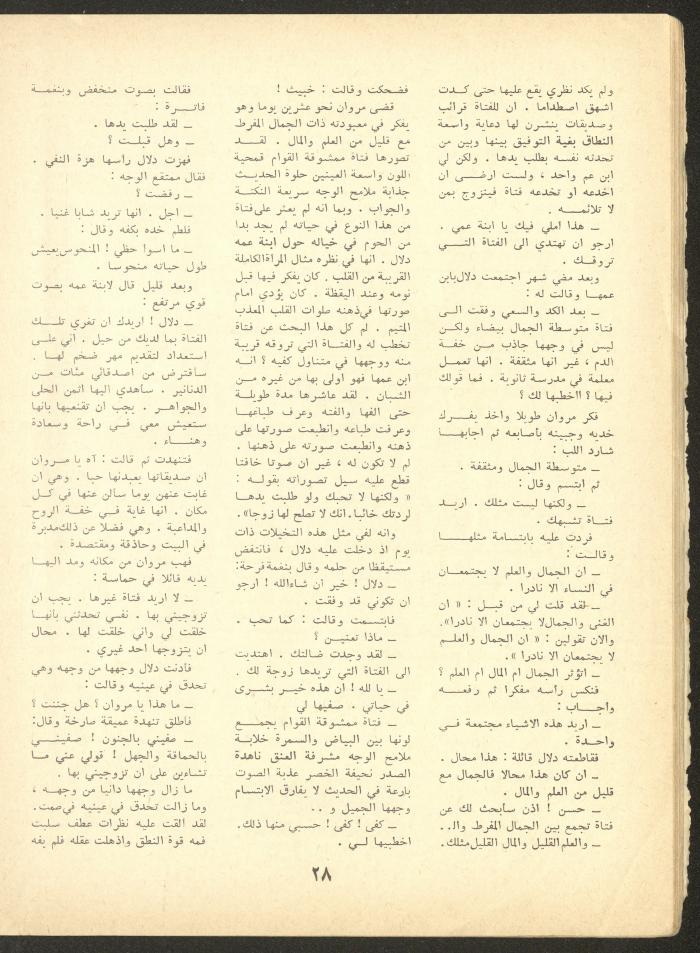 ولم يكد نظري يقع عليها حتى كدت
اشهق اصطداما . ان للفتاة قرائب
وصديقات ينشرن لها دعاية واسعة
النطاق بغية التوفيق بينها وبين من
تحدثه نفسه بطلب يدها . ولكن لي
ابن عم واحد ، ولست ارضى ان
اخدعه او تخدعه فتاة فيتزوج بمن
لا تلائمه .
ـ هذا املي فيك يا ابنة عمي .
ارجو ان تهتدي الى الفتاة التي
تروقك .
وبعد مضي شهر اجتمعت دلال بابن
عمها وقالت له :
ـ بعد الكد والسعي وفقت الى
فتاة متوسطة الجمال بيضاء ولكن
ليس في وجهها جاذب من خفة
الدم ، غير انها مثقفة . انها تعمل
معلمة في مدرسة ثانوية . فما قولك
فيها ؟ ااخطبها لك ؟
فكر مروان طويلا واخذ يفرك
خديه وجبينه بأصابعه ثم اجابها
شارد اللب :
ـ متوسطة الجمال ومثقفة .
ثم ابتسم وقال :
ـ ولكنها ليست مثلك . اريد
فتاة تشبهك .
فردت عليه بابتسامة مثلها
وقالت :
ـ ان الجمال والعلم لا يجتمعان
في النساء الا نادرا .
ـ لقد قلت لي من قبل : « ان
الغنى والجمال لا يجتمعان الا نادرا».
والان تقولين : « ان الجمال والعلم
لا يجتمعان الا نادرا ».
ـ اتؤثر الجمال ام المال ام العلم ؟
فنكس راسه مفكرا ثم رفعه
واجاب :
ـ اريد هذه الاشياء مجتمعة في
واحدة .
فقاطعته دلال قائلة : هذا محال .
ـ ان كان هذا محالا فالجمال مع
قليل من العلم والمال .
ـ حسن ! اذن سابحث لك عن
فتاة تجمع بين الجمال المفرط وال..
ـ والعلم القليل والمال القليل مثلك.
فضحكت وقالت : خبيث !
قضى مروان نحو عشرين يوما وهو
يفكر في معبودته ذات الجمال المفرط
مع قليل من العلم والمال . لقد
تصورها فتاة ممشوقة القوام قمحية
اللون واسعة العينين حلوة الحديث
جذابة ملامح الوجه سريعة النكتة
والجواب . وبما انه لم يعثر على فتاة
من هذا النوع في حياته لم يجد بدا
من الحوم في خياله حول ابنة عمه
دلال . انها في نظره مثال المراة الكاملة
القريبة من القلب . كان يفكر فيها قبل
نومه وعند اليقظة . كان يؤدي امام
صورتها في ذهنه صلوات القلب المعذب
المتيم . لم كل هذا البحث عن فتاة
تخطب له والفتاة التي تروقه قريبة
منه ووجهها في متناول كفيه ؟ انه
ابن عمها فهو اولى بها من غيره من
الشبان . لقد عاشرها مدة طويلة
حتى الفها والفته وعرف طباعها
وعرفت طباعه وانطبعت صورتها على
ذهنه وانطبعت صورته على ذهنها .
لم لا تكون له ، غير ان صوتا خافتا
قطع عليه سيل تصوراته بقوله :
« ولكنها لا تحبك ولو طلبت يدها
لردتك خائبا.انك لا تصلح لها زوجا».
وانه لفي مثل هذه التخيلات ذات
يوم اذ دخلت عليه دلال ، فانتفض
مستيقظا من حلمه وقال بنغمة فرحة:
ـ دلال ! خير ان شاءالله ! ارجو
ان تكوني قد وفقت .
فابتسمت وقالت : كما تحب .
ـ ماذا تعنين ؟
ـ لقد وجدت ضالتك . اهتديت
الى الفتاة التي تريدها زوجة لك .
ـ يا لله ! ان هذه خير بشرى
في حياتي . صفيها لي
ـ فتاة ممشوقة القوام يجمع
لونها بين البياض والسمرة خلابة
ملامح الوجه مشرفة العنق ناهدة
الصدر نحيفة الخصر عذبة الصوت
بارعة في الحديث لا يفارق الابتسام
وجهها الجميل و ..
ـ كفى ! كفى ! حسبي منها ذلك.
اخطبيها لي .
فقالت بصوت منخفض وبنغمة
فاترة :
ـ لقد طلبت يدها .
ـ وهل قبلت ؟
فهزت دلال راسها هزة النفي .
فقال ممتقع الوجه :
ـ رفضت ؟
ـ اجل . انها تريد شابا غنيا .
فلطم خده بكفه وقال :
ـ ما اسوا حظي ! المنحوس يعيش
طول حياته منحوسا .
وبعد قليل قال لابنة عمه بصوت
قوي مرتفع :
ـ دلال ! اريدك ان تغري تلك
الفتاة بما لديك من حيل . اني على
استعداد لتقديم مهر ضخم لها .
ساقترض من اصدقائي مئات من
الدنانير . ساهدي اليها اثمن الحلى
والجواهر . يجب ان تقنعيها بانها
ستعيش معي في راحة وسعادة
وهناء .
فتنهدت ثم قالت : آه يا مروان
ان صديقاتها يعبدنها حبا . وهي ان
غابت عنهن يوما سالن عنها في كل
مكان . انها غاية في خفة الروح
والمداعبة . وهي فضلا عن ذلك مدبرة
في البيت وحاذقة ومقتصدة .
فهب مروان من مكانه ومد اليها
يديه قائلا في حماسة :
ـ لا اريد فتاة غيرها . يجب ان
تزوجيني بها . نفسي تحدثني بانها
خلقت لي واني خلقت لها . محال
ان يتزوجها احد غيري .
فادنت دلال وجهها من وجهه وهي
تحدق في عينيه وقالت :
ـ ما هذا يا مروان ؟ هل جننت ؟
فاطلق تنهدة عميقة صارخة وقال:
ـ صفيني بالجنون ! صفيني
بالحماقة والجهل ! قولي عني ما
تشاءين على ان تزوجيني بها .
ما زال وجهها دانيا من وجهه ،
وما زالت تحدق في عينيه في صمت.
لقد القت عليه نظرات عطف سلبت
فمه قوة النطق واذهلت عقله فلم يفه
٢٨